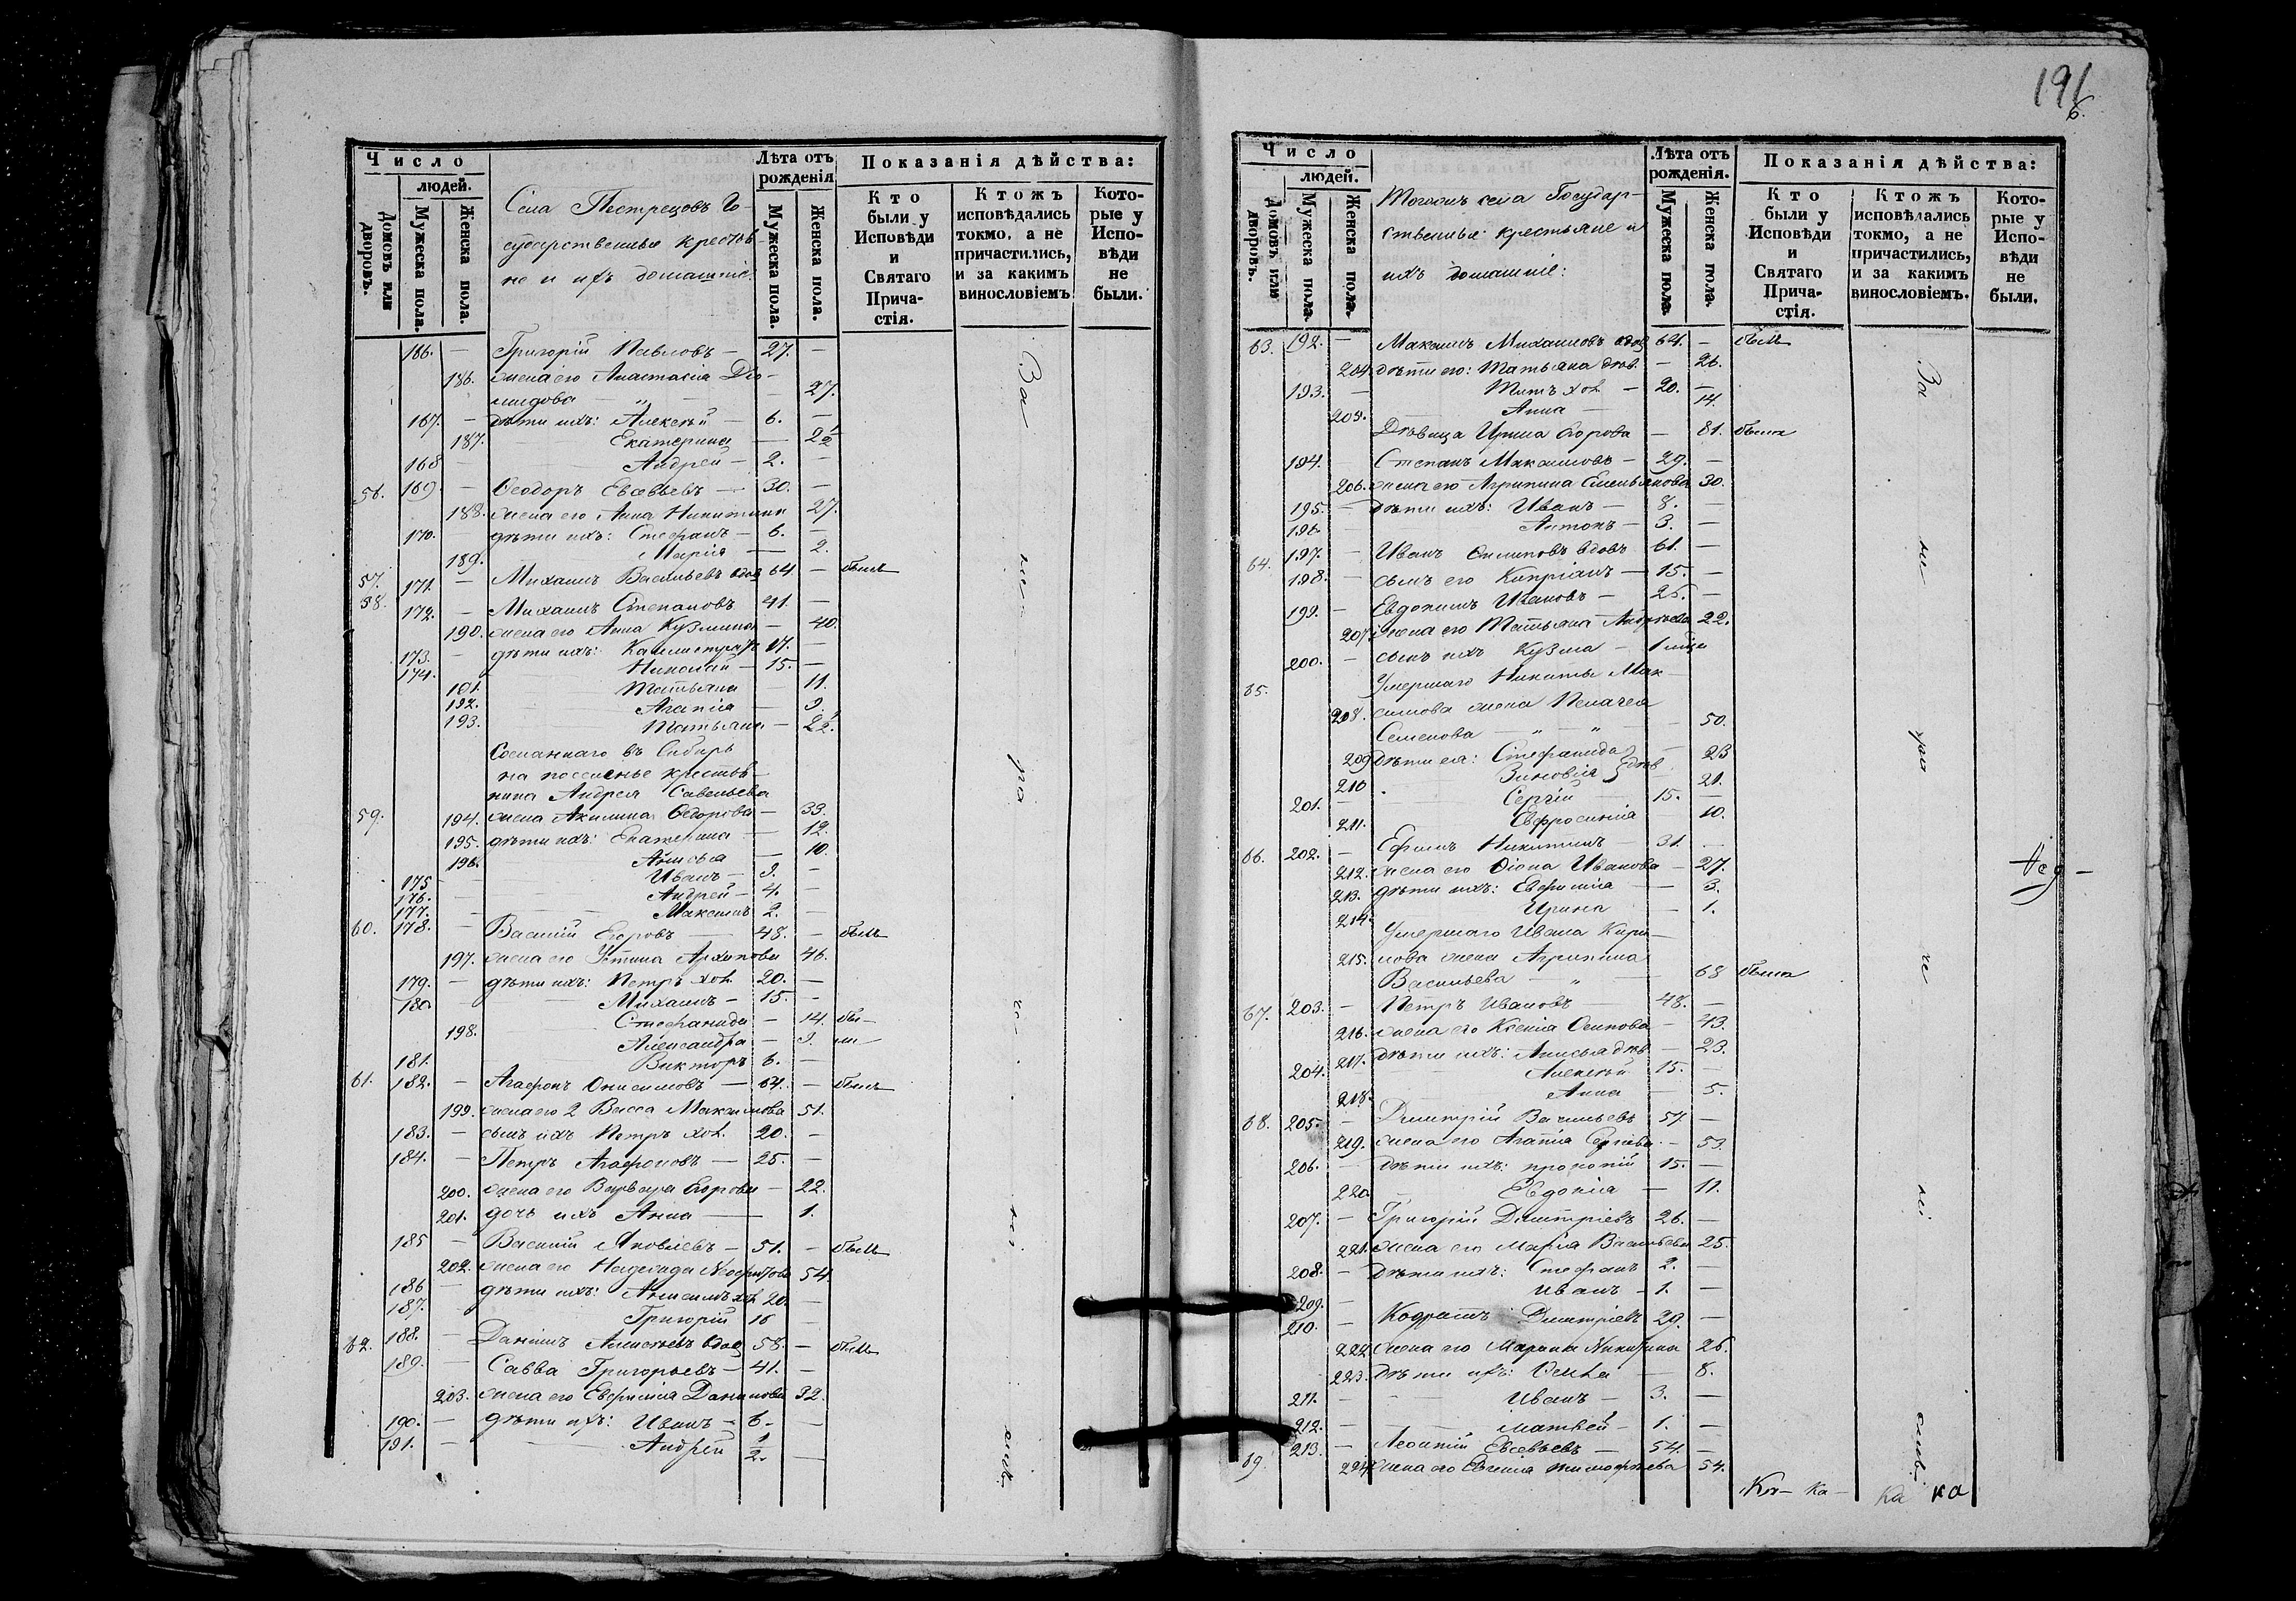 191
6.
Число
людей.
Домовъ или дворовъ.
Мужеска пола.
Женска пола.
Села Пестрецовъ Го-
сударственные крестья-
не и ихъ домашніе:
Лѣта отъ рожденія
Мужеска пола.
Женска пола.
Показанія дѣйства:
Кто были у Исповѣди и Святаго Причастія.
Ктожъ исповѣдались токмо, а не причастились, и за какимъ винословіемъ.
Которые у Исповѣди не были.
166. — Григорій Павловъ — 27. —
186. жена его Анастасія Діо-
мидова — „ — 27.
167. — дѣти ихъ: Алексѣй — 6. —
187. Екатерина — 2½
168 — Андрей — 2. —
56. 169. — Ѳеодоръ Евсевьевъ — 30. —
188. жена его Анна Никитина 27.
170. — дѣти ихъ: Стефанъ — 6. —
189. Марія — 2.
57. 171. — Михаилъ Васильевъ вдов 64. — былъ
58. 172. — Михаилъ Степановъ 41. —
190. жена его Анна Кузмина — 40.
173. — дѣти ихъ: Каллистратъ 17. —
174. — Николай — 15. —
191. Татьяна — 11.
192. Агапія — 9.
193. Татьяна — 2½.
Сосланнаго въ Сибирь
на поселенье крестья-
нина Андрея Савельева
59. 194. жена Акилина Ѳедорова — 33.
195. дѣти ихъ: Екатерина — 12.
196. Анисья — 10.
175 — Иванъ — 9. —
176. — Андрей — 4. —
177. — Максимъ 2. —
60. 178. — Василій Егоровъ — 48. — былъ
197. жена его Устина Архипова 46.
179. — дѣти ихъ: Петръ хол. 20. —
180. Михаилъ — 15. —
198. Стефанида — 14. бы-
Александра — 9. ли
181. Викторъ 6. —
61. 182. — Агафонъ Онисимовъ — 64. — былъ
199. жена его 2 Васса Максимова 51.
183. — сынъ ихъ Петръ хол. 20. —
184. — Петръ Агафоновъ — 25. —
200. жена его Варвара Егорова — 22.
201. дочь ихъ Анна — 1.
185 — Василій Яковлевъ — 51. — былъ
202. жена его Надежда Неофитова 54.
186 — дѣти ихъ: Анисимъ хол. 20. —
187. Григорій 16 —
62. 188. — Даніилъ Алексѣевъ вдов 58. — былъ
189. — Савва Григорьевъ — 41. —
203. жена его Евфимія Данилова 32.
190. — дѣти ихъ: Иванъ — 6. —
191. — Андрей ½. —
За не ра че ні емъ
Число
людей.
Домовъ или дворовъ.
Мужеска пола.
Женска пола.
Тогожъ села Государ-
ственные крестьяне и
ихъ домашніе:
Лѣта отъ рожденія.
Мужеска пола.
Женска пола.
Показанія дѣйства:
Кто были у Исповѣди и Святаго Причастія.
Ктожъ исповѣдались токмо, а не причастились, и за какимъ винословіемъ.
Которые у Исповѣди не были.
63. 192. — Максимъ Михаиловъ вдов 64. — былъ
204. дѣти его: Татьяна дѣв. — 26.
193. — Титъ хол. — 20. —
205. Анна — 14.
Дѣвица Ирина Егорова — 81. была
194. Степанъ Максимовъ — 29. —
206. жена его Агрипина Емельянова 30.
195. — дѣти ихъ: Иванъ — 8. —
196. Антонъ — 3. —
64. 197. — Иванъ Филиповъ вдовъ 61. —
198. — сынъ его Кипріанъ — 15. —
199. — Евдокимъ Ивановъ — 25. —
207. жена его Татьяна Андреева 22.
200. — сынъ ихъ Кузма — 1
65. Умершаго Никиты Мак-
208. симова жена Пелагея
Семенова — „ — „ — 50.
209 дѣти ея: Стефанида — 23
210 Зиновія дѣв. 21.
201. — Сергій — 15. —
211. Евфросинія — 10.
66. 202. — Ефимъ Никитинъ — 31. —
212. жена его Ѳіона Иванова — 27.
213. дѣти ихъ: Евфимія — 3.
214. Ирина — 1.
Умершаго Ивана Кири-
215. лова жена Агрипина
Васильева — „ — 68 была
67. 203. — Петръ Ивановъ — 48. —
216. жена его Ксенія Осипова — 43.
217. дѣти ихъ: Анисья дѣв. — 23.
204. Алексѣй 15. —
218. Анна — 5.
68. 205. — Дмитрій Васильевъ 57. —
219. жена его Агапія Сергѣева — 53.
206. — дѣти ихъ: Прокопій 15. —
220 Евдокія — 11.
207. — Григорій Дмитріевъ 26. —
221. жена его Марѳа Васильева 25.
208. — дѣти ихъ: Стефанъ 2. —
209. — Иванъ — 1. —
210. — Кодратъ Дмитріевъ 29. —
222 жена его Марина Никитина 26.
223. дѣти ихъ: — 8.
211. — Иванъ — 3. —
212. — Матвей — 1. —
69. 213. — Леонтій Евсевьевъ — 54. —
224. жена его Евгенія Тимофеева 54.
За не ра че ні емъ